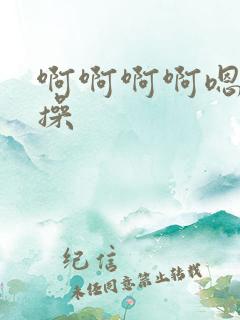 啊啊啊啊嗯
操
纪信
未经同意禁止转载